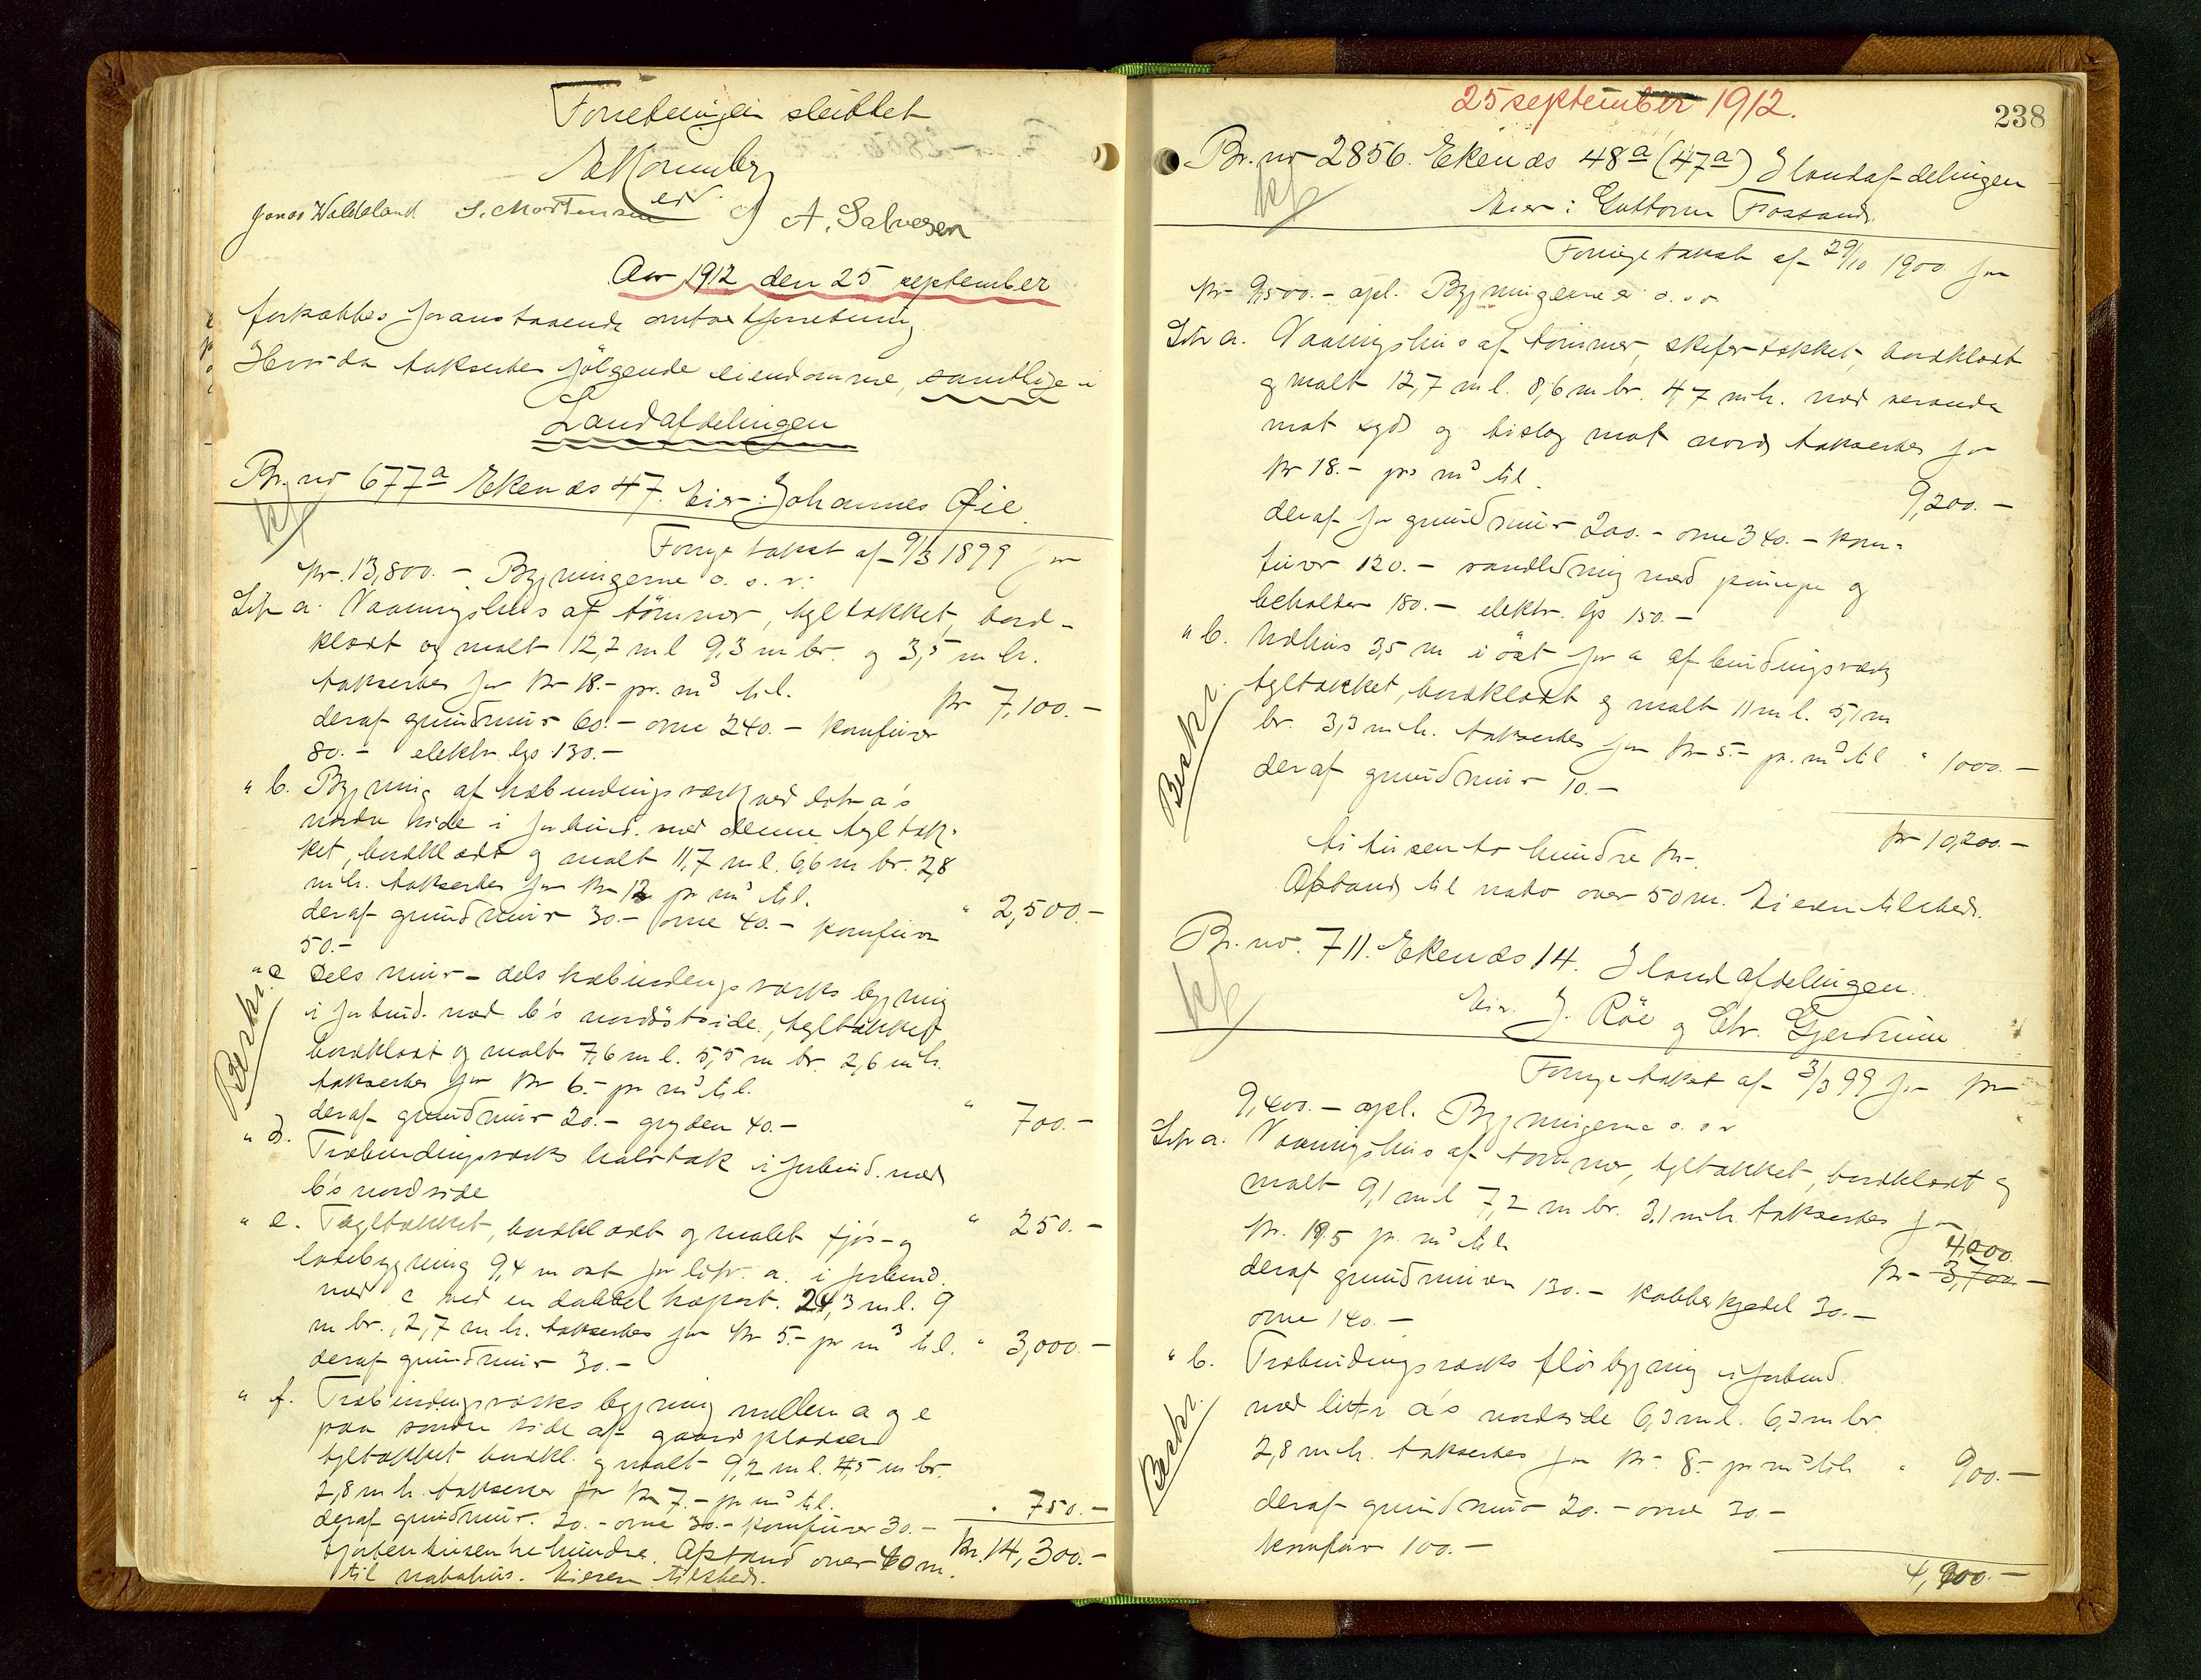 Forretningen sluttet
Jonas Waldeland S. Mortensen A. Salvesen
Aar 1912 den 25 september
fortsattes foranstaaende omtaxtforretning
Hvorda takseertes følgende eiendomme, samtlige i
Landafdelingen
Br. nr 677a Ekenæs 47. Eier: Johannes Øie
Forrige takst af 9/3 1899 for
kr. 13,800.- Bygningerne o. s. v.
Litr a. Vaaningshus af tömmer, tegltækket, bord-
klædt og malt 12,7 m l. 9,3 m br. og 3,5 m h.
takseertes for kr 18.- pr. m3 til. kr 7,100.-
deraf grundmur 60.- ovne 240.- komfurer
80.- elektr. lys 130.-
" b. Bygning af træbindingsverk ved litr a's
nordre side i forbind. med denne tegltæk-
ket, bordklædt og malt 11,7 m l. 6,6 m br. 2,8
m h. takseertes for kr 12 pr m3 til. " 2,500.-
deraf grundmur 30.- ovne 40.- komfurer
50.-
" c Dels mur- dels træbindingsverks bygning
i forbind. med b's nordöstside, tegltækket
bordklædt og malt 7,6 m l. 5,5 m br. 2,6 m h.
takseertes for kr 6.- pr m3 til. " 700.-
deraf grundmur 20.- gryden 40.-
Beskr.
" d. Træbindingsverks halvtak i forbind. med
b's nordside " 250.-
" e. Tegltækket, bordklædt og malet fjös- og
ladebygning 9,4 m öst for litr. a. i forbind.
med c med en dobbel kopert. 24,3 m l. 9
m br., 2,7 m h. takseertes for kr 5.- pr m3 til. " 3,000.-
deraf grundmur 30.-
" f. Træbindingsverks bygning mellem a og e
paa söndre side af gaardspladsen
tegltækket bordkl. og malt 9,2 m l. 4,5 m br.
2,8 m h. takseeres for kr 7.- pr m3 til. " 750.-
deraf grundmur 20.- ovne 30.- komfurer 30.-
fjortentusentrehundre. Afstand over 40 m. kr. 14,300.-
til nabohus. Eieren tilstede.
25 september 1912.
238
Br. nr 2856. Ekenæs 48a (47a) I landafdelingen
Eier: Guttorm Fossand.
Forrige takst af 29/10 1900 for
kr 9,500.- opl. Bygningerne er o. s v
Litr a. Vaaningshus af tömmer, skifertækket, bordklædt
og malt 12,7 m l. 8,6 m br. 4,7 m h. med veranda
mot syd og bislag mot nord takseertes for
kr 18.- pr m3 til. 9,200.-
deraf for grundmur 200.- ovne 340.- kom-
furer 120.- vandledning med pumpe og
beholder 180.- elektr. lys 150.-
" b. Udhus 3,5 m i öst for a af bindingsverk
tegltækket, bordklædt og malt 11 m l. 5,1 m
br. 3,3 m h. takseertes for kr 5.- pr. m3 til " 1000.-
deraf grundmur 10.-
Beskr.
kr 10,200.-
ti tusen to hundre kr.
Afstand til nabo over 50 m. Eieren tilstede.
Br. nr. 711. Ekenæs 14. I landafdelingen.
Eier. J. Röe og Chr. Gjerdrum
Forrige takst af 3/3 99 for kr
9,400.- opl. Bygningerne o. s v
Litr a. Vaaningshus af tömmer, tegltækket, bordklædt og
malt 9,1 m l 7,2 m br. 3,1 m h. takseertes for
kr. 19.5 pr. m3 til 4,000
kr 3,700.-
deraf grundmuren 130.- kobberkjedel 30.-
ovne 140.-
" b. Træbindingsverks flöibygning i forbind.
med litr a's nordside 6,3 m l. 6,3 m br
2,8 m h. takseertes for kr. 8.- pr m3 til " 900.-
deraf grundmur 20.- ovne 30.-
komfur 100.-
Beskr.
4,900.-